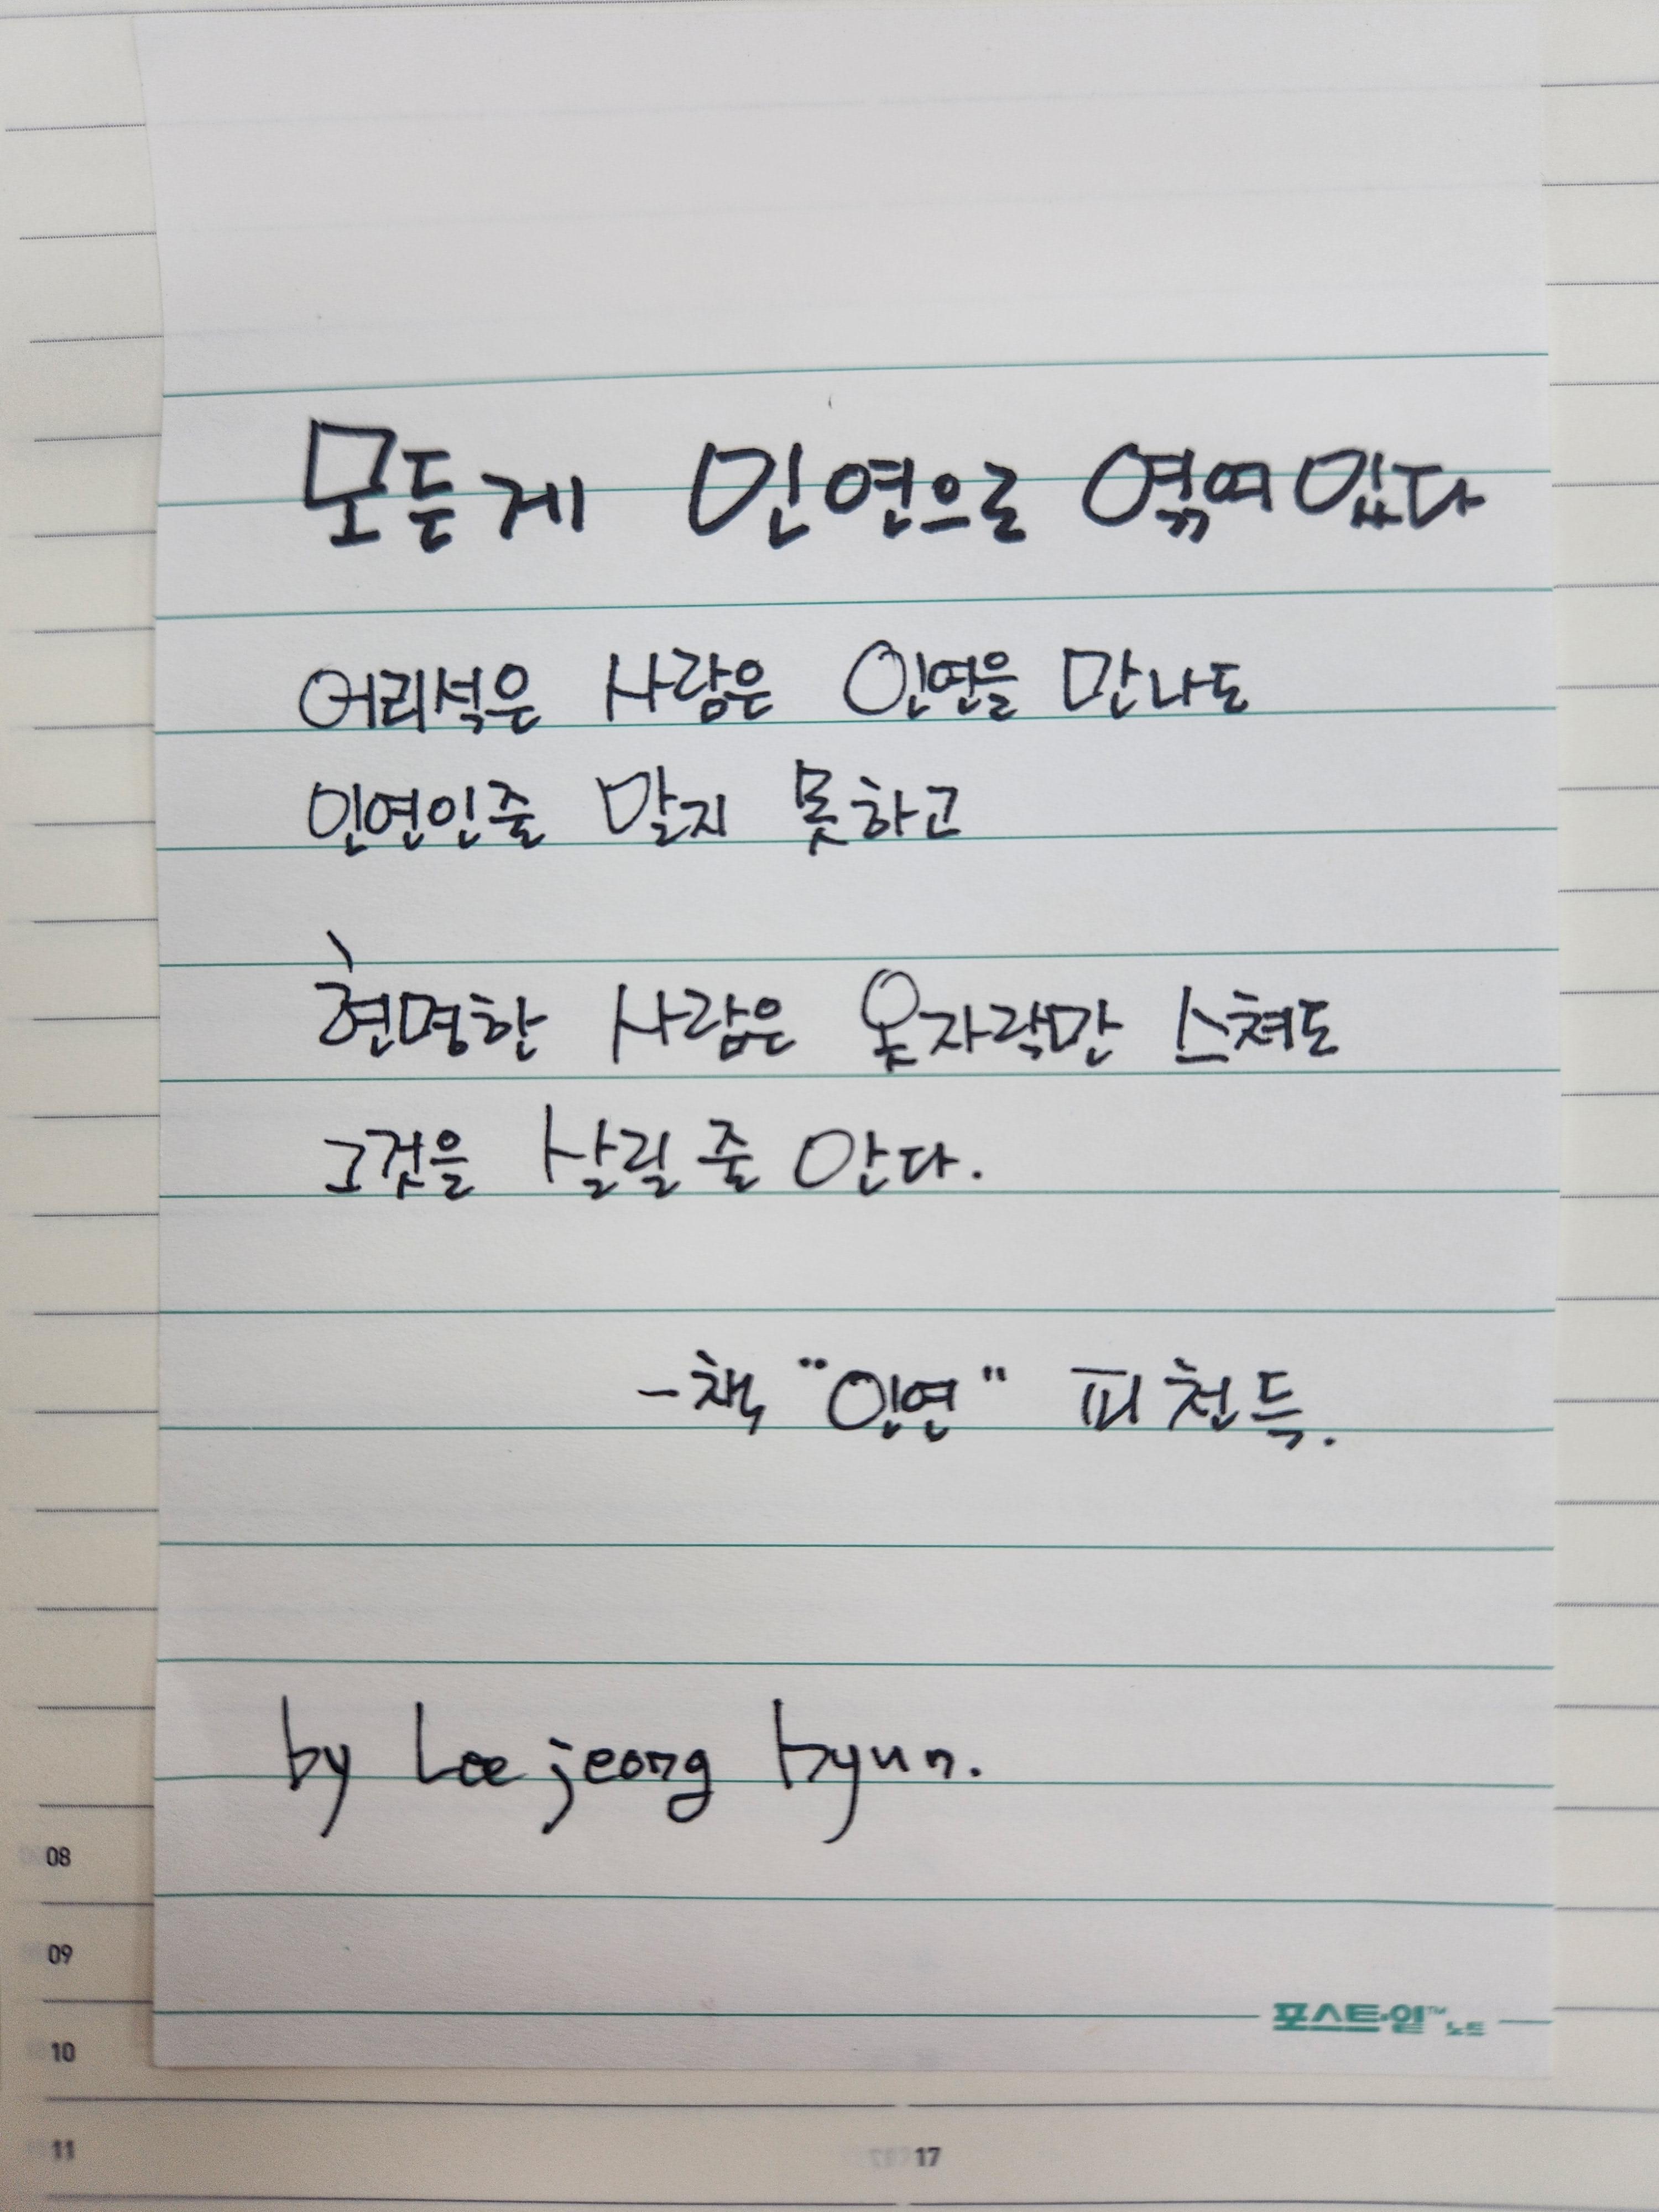 모든게 인연으로 엮여있다
어리석은 사람은 인연을 만나도
인연인줄 알지 못하고
현명한 사람은 옷자락만 스쳐도
그것을 살릴 줄 안다.
-책 "인연" 피천득.
by Lee jeong hyun.
08
09
포스트·잇™ 노트
10
11
17